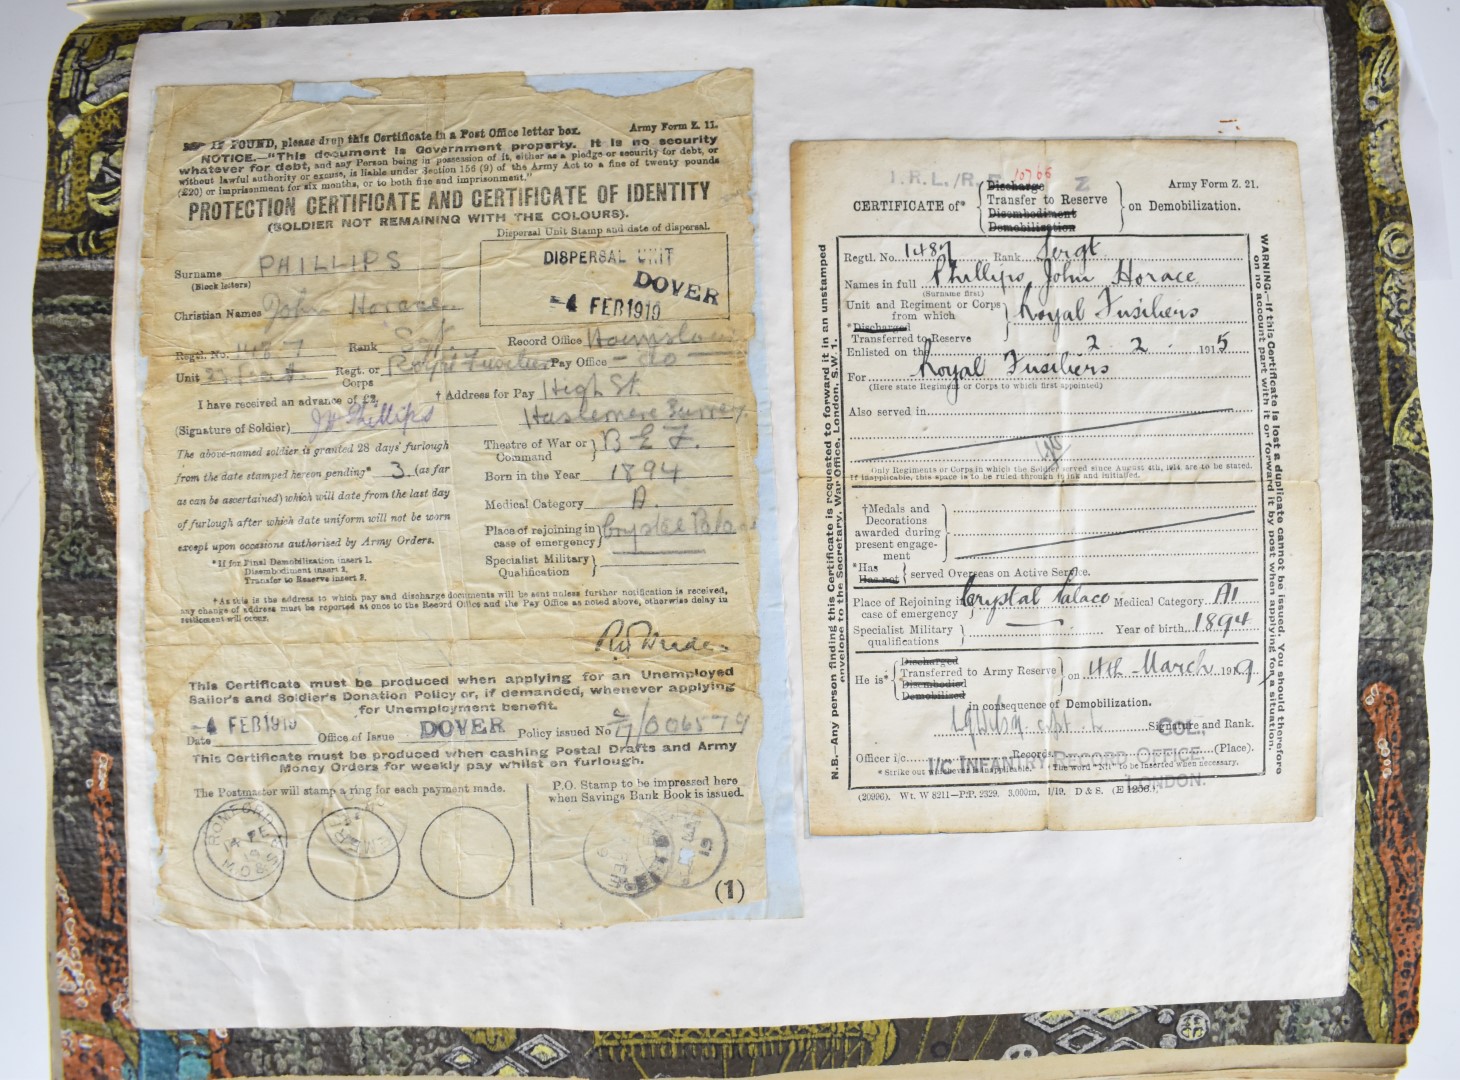 IF FOUND, please drop this Certificate in a Post Office letter box. Army Form Z. 11.
NOTICE.—"This document is Government property. It is no security
whatever for debt, and any Person being in possession of it, either as a pledge or security for debt, or
without lawful authority or excuse, is liable under Section 156 (9) of the Army Act to a fine of twenty pounds
(£20) or imprisonment for six months, or to both fine and imprisonment."
PROTECTION CERTIFICATE AND CERTIFICATE OF IDENTITY
(SOLDIER NOT REMAINING WITH THE COLOURS).
Dispersal Unit Stamp and date of dispersal.
DISPERSAL UNIT
DOVER
-4 FEB 1919
Surname PHILLIPS
(Block letters)
Christian Names John Horace
Regtl. No. 1487 Rank Sgt. Record Office Hounslow
Unit 23 Regt. or Corps Royal Fusiliers Pay Office - do -
I have received an advance of £2.
(Signature of Soldier) JH Phillips
† Address for Pay High St.
Haslemere Surrey.
The above-named soldier is granted 28 days' furlough
from the date stamped hereon pending* 3 (as far
as can be ascertained) which will date from the last day
of furlough after which date uniform will not be worn
except upon occasions authorised by Army Orders.
*If for Final Demobilization insert 1.
Disembodiment insert 2,
Transfer to Reserve insert 3.
Theatre of War or Command } B.E.F.
Born in the Year 1894
Medical Category A.
Place of rejoining in case of emergency } Crystal Palace
Specialist Military Qualification }
†As this is the address to which pay and discharge documents will be sent unless further notification is received,
any change of address must be reported at once to the Record Office and the Pay Office as noted above, otherwise delay in
settlement will occur.
This Certificate must be produced when applying for an Unemployed
Sailor's and Soldier's Donation Policy or, if demanded, whenever applying
for Unemployment benefit.
Date -4 FEB 1919 Office of Issue DOVER Policy issued No. /006579
This Certificate must be produced when cashing Postal Drafts and Army
Money Orders for weekly pay whilst on furlough.
The Postmaster will stamp a ring for each payment made.
P.O. Stamp to be impressed here
when Savings Bank Book is issued.
ROMFORD
(1)
10766
Z
Army Form Z. 21.
CERTIFICATE of* { Discharge
Transfer to Reserve
Disembodiment
Demobilization } on Demobilization.
Regtl. No. 1487 Rank Sergt.
Names in full Phillips John Horace
(Surname first)
Unit and Regiment or Corps
from which } Royal Fusiliers
*Discharged
Transferred to Reserve
Enlisted on the 2 . 2 . 1915
For Royal Fusiliers
(Here state Regiment or Corps to which first appointed)
Also served in
Only Regiments or Corps in which the Soldier served since August 4th, 1914 are to be stated.
If inapplicable, this space is to be ruled through in ink and initialled.
†Medals and
Decorations
awarded during
present engage-
ment
*Has
Has not } served Overseas on Active Service.
Place of Rejoining in
case of emergency } Crystal Palace Medical Category A1
Specialist Military
qualifications } Year of birth 1894
He is* { Discharged
Transferred to Army Reserve
Disembodied
Demobilised } on 4th March 1919
in consequence of Demobilization.
Signature and Rank.
COL.
Officer i/c. Records. (Place).
I/C INFANTRY RECORD OFFICE.
LONDON.
*Strike out whichever is inapplicable. †The word "Nil" to be inserted when necessary.
(20996). Wt. W 8211—P.P. 2329. 3,000m. 1/19. D & S. (E 1256.)
N.B.—Any person finding this Certificate is requested to forward it in an unstamped
envelope to the Secretary, War Office, London, S.W. 1.
WARNING.—If this Certificate is lost a duplicate cannot be issued. You should therefore
on no account part with it or forward it by post when applying for a situation.